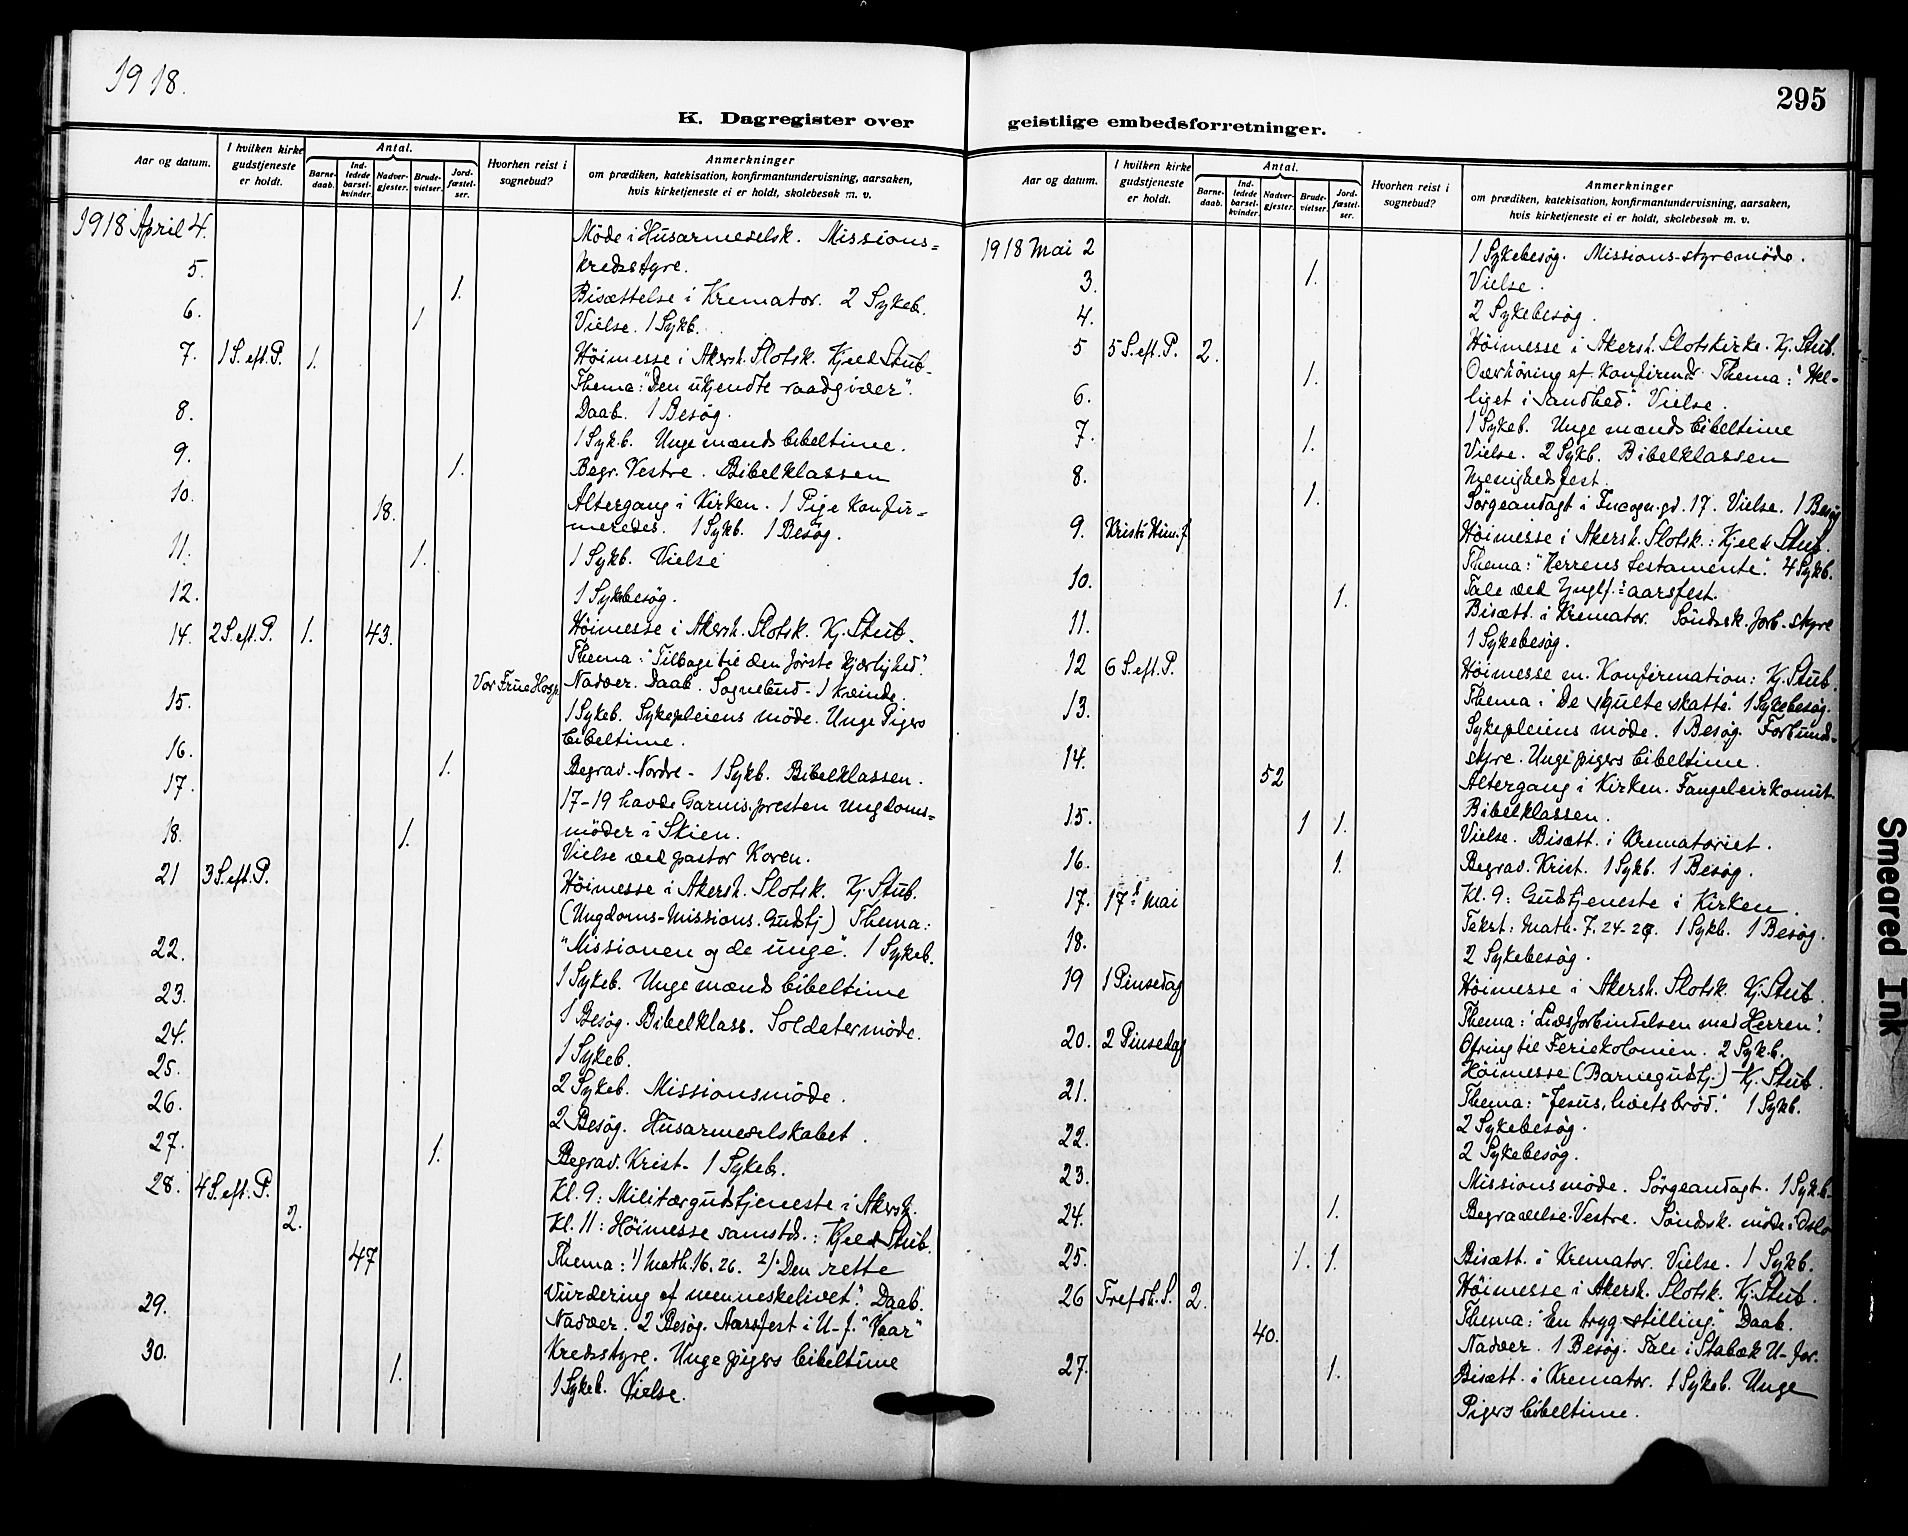 1918.
295
K. Dagregister over geistlige embedsforretninger.
Aar og datum.
I hvilken kirke gudstjeneste er holdt.
Antal.
Barne-daab.
Ind-ledede barsel-kvinder.
Nadver-gjester.
Brude-vielser.
Jord-fæstel-ser.
Hvorhen reist i sognebud?
Anmerkninger
om prædiken, katekisation, konfirmantundervisning, aarsaken,
hvis kirketjeneste ei er holdt, skolebesøk m. v.
1918 April 4. Møde i Husarmeselsk. Missions=
kredsstyre.
5. 1. Bisættelse i Kremator. 2 Sykeb.
6. 1 Vielse. 1 Sykb.
7. 1 S. eft. P. 1. Höimesse i Akersh. Slotsk. Kjeld Stub.
Thema: "Den ukjendte raadgiver".
Daab. 1 Besøg.
8. 1 Sykb. Unge mænds bibeltime.
9. 1. Begr. Vestre. Bibelklassen
10. 18. Altergang i Kirken. 1 Pige konfir=
meredes. 1 Sykb. 1 Besøg.
11. 1. 1 Sykb. Vielse
12. 1 Sykebesøg.
14. 2 S. eft. P. 1. 43. Höimesse i Akersh. Slotsk. Kj. Stub.
Thema: "Tilbage til den første kjærlighed".
Vor Frue Hosp. Nadver. Daab. Sognebud - 1 Kvinde.
15. 1 Sykeb. Sykepleiens møde. Unge Pigers
bibeltime.
16. 1. Begrav. Nordre - 1 Sykb. Bibelklassen.
17. 17-19 havde Garnis.presten Ungdoms=
møder i Skien.
18. 1. Vielse ved pastor Koren.
21 3 S. eft. P. Höimesse i Akersh. Slotsk. Kj. Stub.
(Ungdoms-Missions. Gudstj.) Thema:
"Missionen og de unge". 1 Sykeb.
22. 1 Sykeb. Unge mænds bibeltime
23. 1 Besøg. Bibelklass. Soldatermøde.
24. 1 Sykeb.
25. 2 Sykeb. Missionsmøde.
26. 2 Besøg. Husarmeselskabet.
27. 1. Begrav. Krist. 1 Sykeb.
28. 4 S. eft. P. Kl. 9: Militærgudstjeneste i Akersh.
2. Kl. 11: Höimesse samstds.: Kjeld Stub.
47 Thema: 1) Math. 16. 26. 2) "Den rette
vurdering af menneskelivet". Daab.
29. Nadver. 2 Besøg. Aarsfest i U-f. "Vaar"
Kredsstyre. Unge pigers bibeltime
30. 1. 1 Sykeb. Vielse.
Aar og datum.
I hvilken kirke gudstjeneste er holdt.
Antal.
Barne-daab.
Ind-ledede barsel-kvinder.
Nadver-gjester.
Brude-vielser.
Jord-fæstel-ser.
Hvorhen reist i sognebud?
Anmerkninger
om prædiken, katekisation, konfirmantundervisning, aarsaken,
hvis kirketjeneste ei er holdt, skolebesøk m. v.
1918 Mai 2 1 Sykebesøg. Missions-styremøde.
3. 1. Vielse.
4. 2 Sykebesøg.
5 5 S. eft. P. 2. Höimesse i Akersh. Slotskirke. Kj. Stub.
1. Overhöring af Konfirmd. Thema: "Hel-
liget i Sandhed." Vielse.
6. 1 Sykeb. Unge mænds bibeltime
7. 1. Vielse. 2 Sykb. Bibelklassen
8. Menighedsfest.
1. Sørgeandagt i Incogn.gd. 17. Vielse. 1 Besøg
9. Kristi Him.f. Höimesse i Akersh. Slotsk.: Kjeld Stub.
Thema: "Herrens testamente". 4 Sykb.
10. Tale ved Ynglf.=aarsfest.
1. Bisætt. i Kremator. Søndssk. forb. styre
11. 1 Sykebesøg.
12 6 S. eft. P. Höimesse m. Konfirmation: Kj. Stub.
Thema: "De skjulte skatte". 1 Sykebesøg.
13. Sykepleiens møde. 1 Besøg. Forbunds-
styre. Unge pigers bibeltime.
14. 52 Altergang i Kirken. Fangeleirkomit.
Bibelklassen.
15. 1 1. Vielse. Bisætt. i Krematoriet.
16. 1. Begrav. Krist. 1 Sykb. 1 Besøg.
17. 17d Mai Kl. 9: Gudstjeneste i Kirken.
Tekst: Math. 7. 24-29. 1 Sykb. 1 Besøg.
18. 2 Sykebesøg.
19 1 Pinsedag Höimesse i Akersh. Slotsk. Kj. Stub.
Thema: "Livsforbindelsen med Herren".
Ofring til Feriekolonien. 2 Sykb.
20. 2 Pinsedag Höimesse (Barnegudstj.) - Kj. Stub.
Thema: "Jesus, livets brød." 1 Sykb.
21. 2 Sykebesøg.
22. 2 Sykebesøg.
23. Missionsmøde. Sørgeandagt. 1 Sykb.
24. 1. Begravelse. Vestre. Søndsk. møde i Oslo
25. 1. 1. Bisætt. i Kremator. Vielse. 1 Sykb.
26 Trefdh. S. 2. Höimesse i Akersh. Slotsk. Kj. Stub.
Thema: "En tryg stilling." Daab.
40. Nadver. 1 Besøg. Tale i Stabæk U-for.
27. 1. Bisætt. i Kremator. 1 Sykeb. Unge
Pigers bibeltime.
Smeared Ink